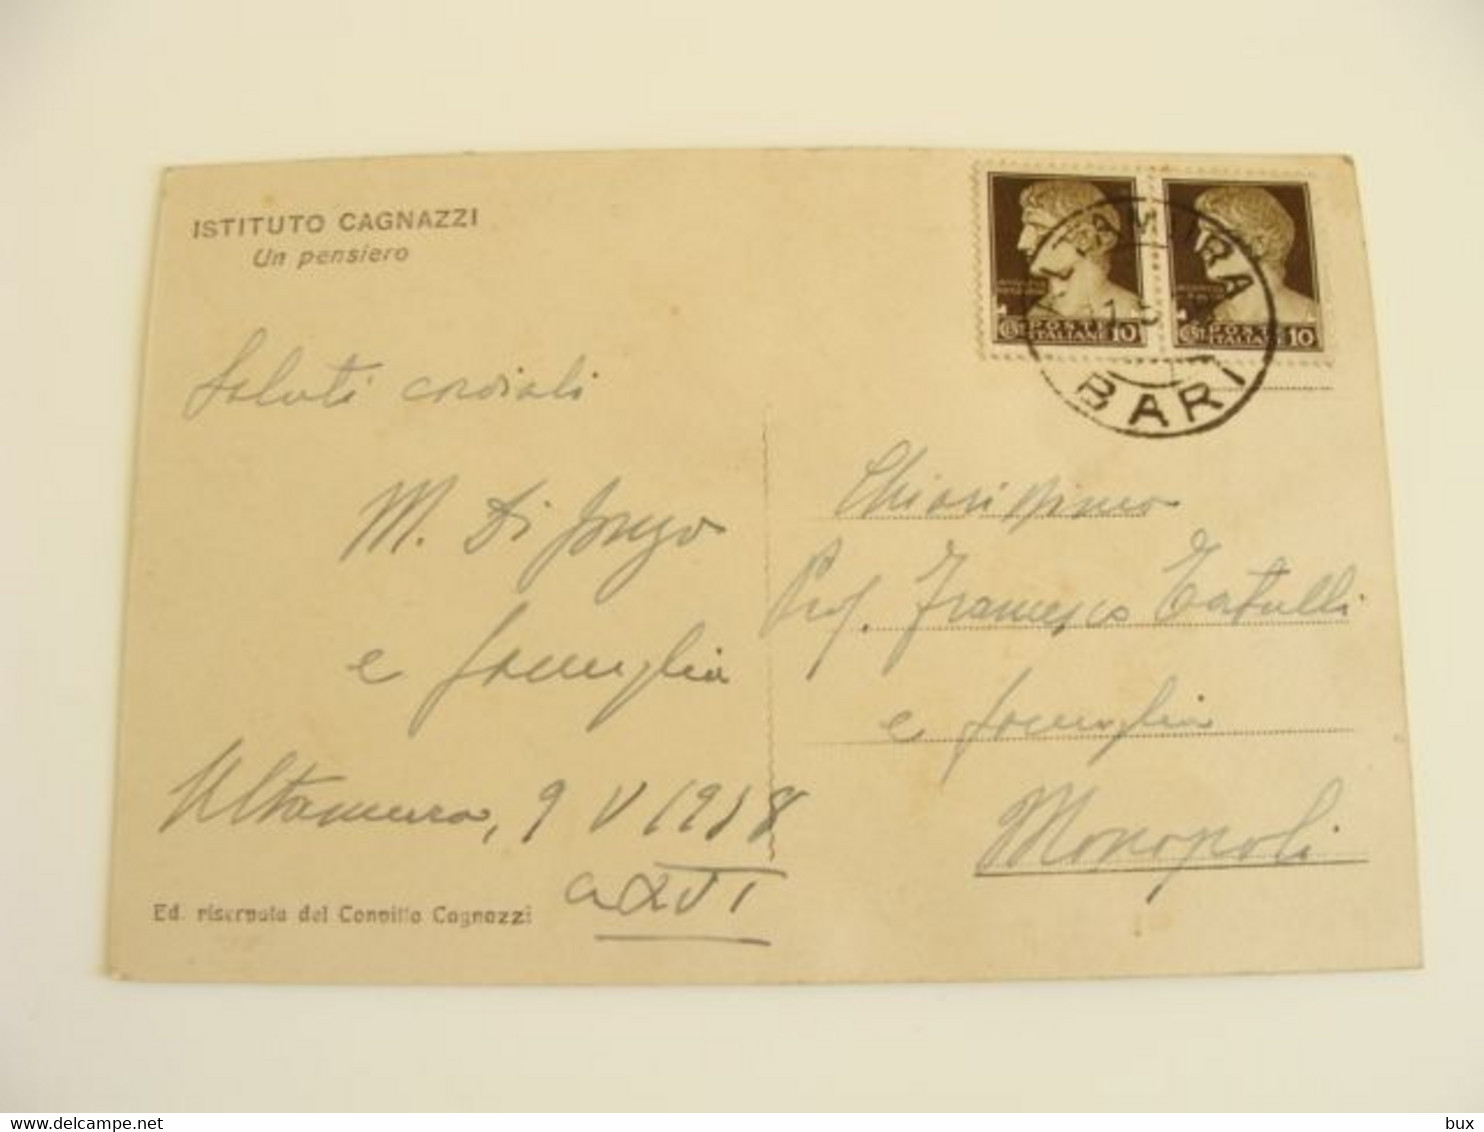 ISTITUTO CAGNAZZI
Un pensiero
Saluti cordiali
M. Di
e famiglia
Altamura, 9 V 1938
a XVI
Ed. riservata del Convitto Cagnazzi
ALTAMURA
BARI
POSTE
ITALIANE 10
POSTE
ITALIANE 10
Chiarissimo
Prof. Francesco Tatulli
e famiglia
Monopoli
www.delcampe.net
bux